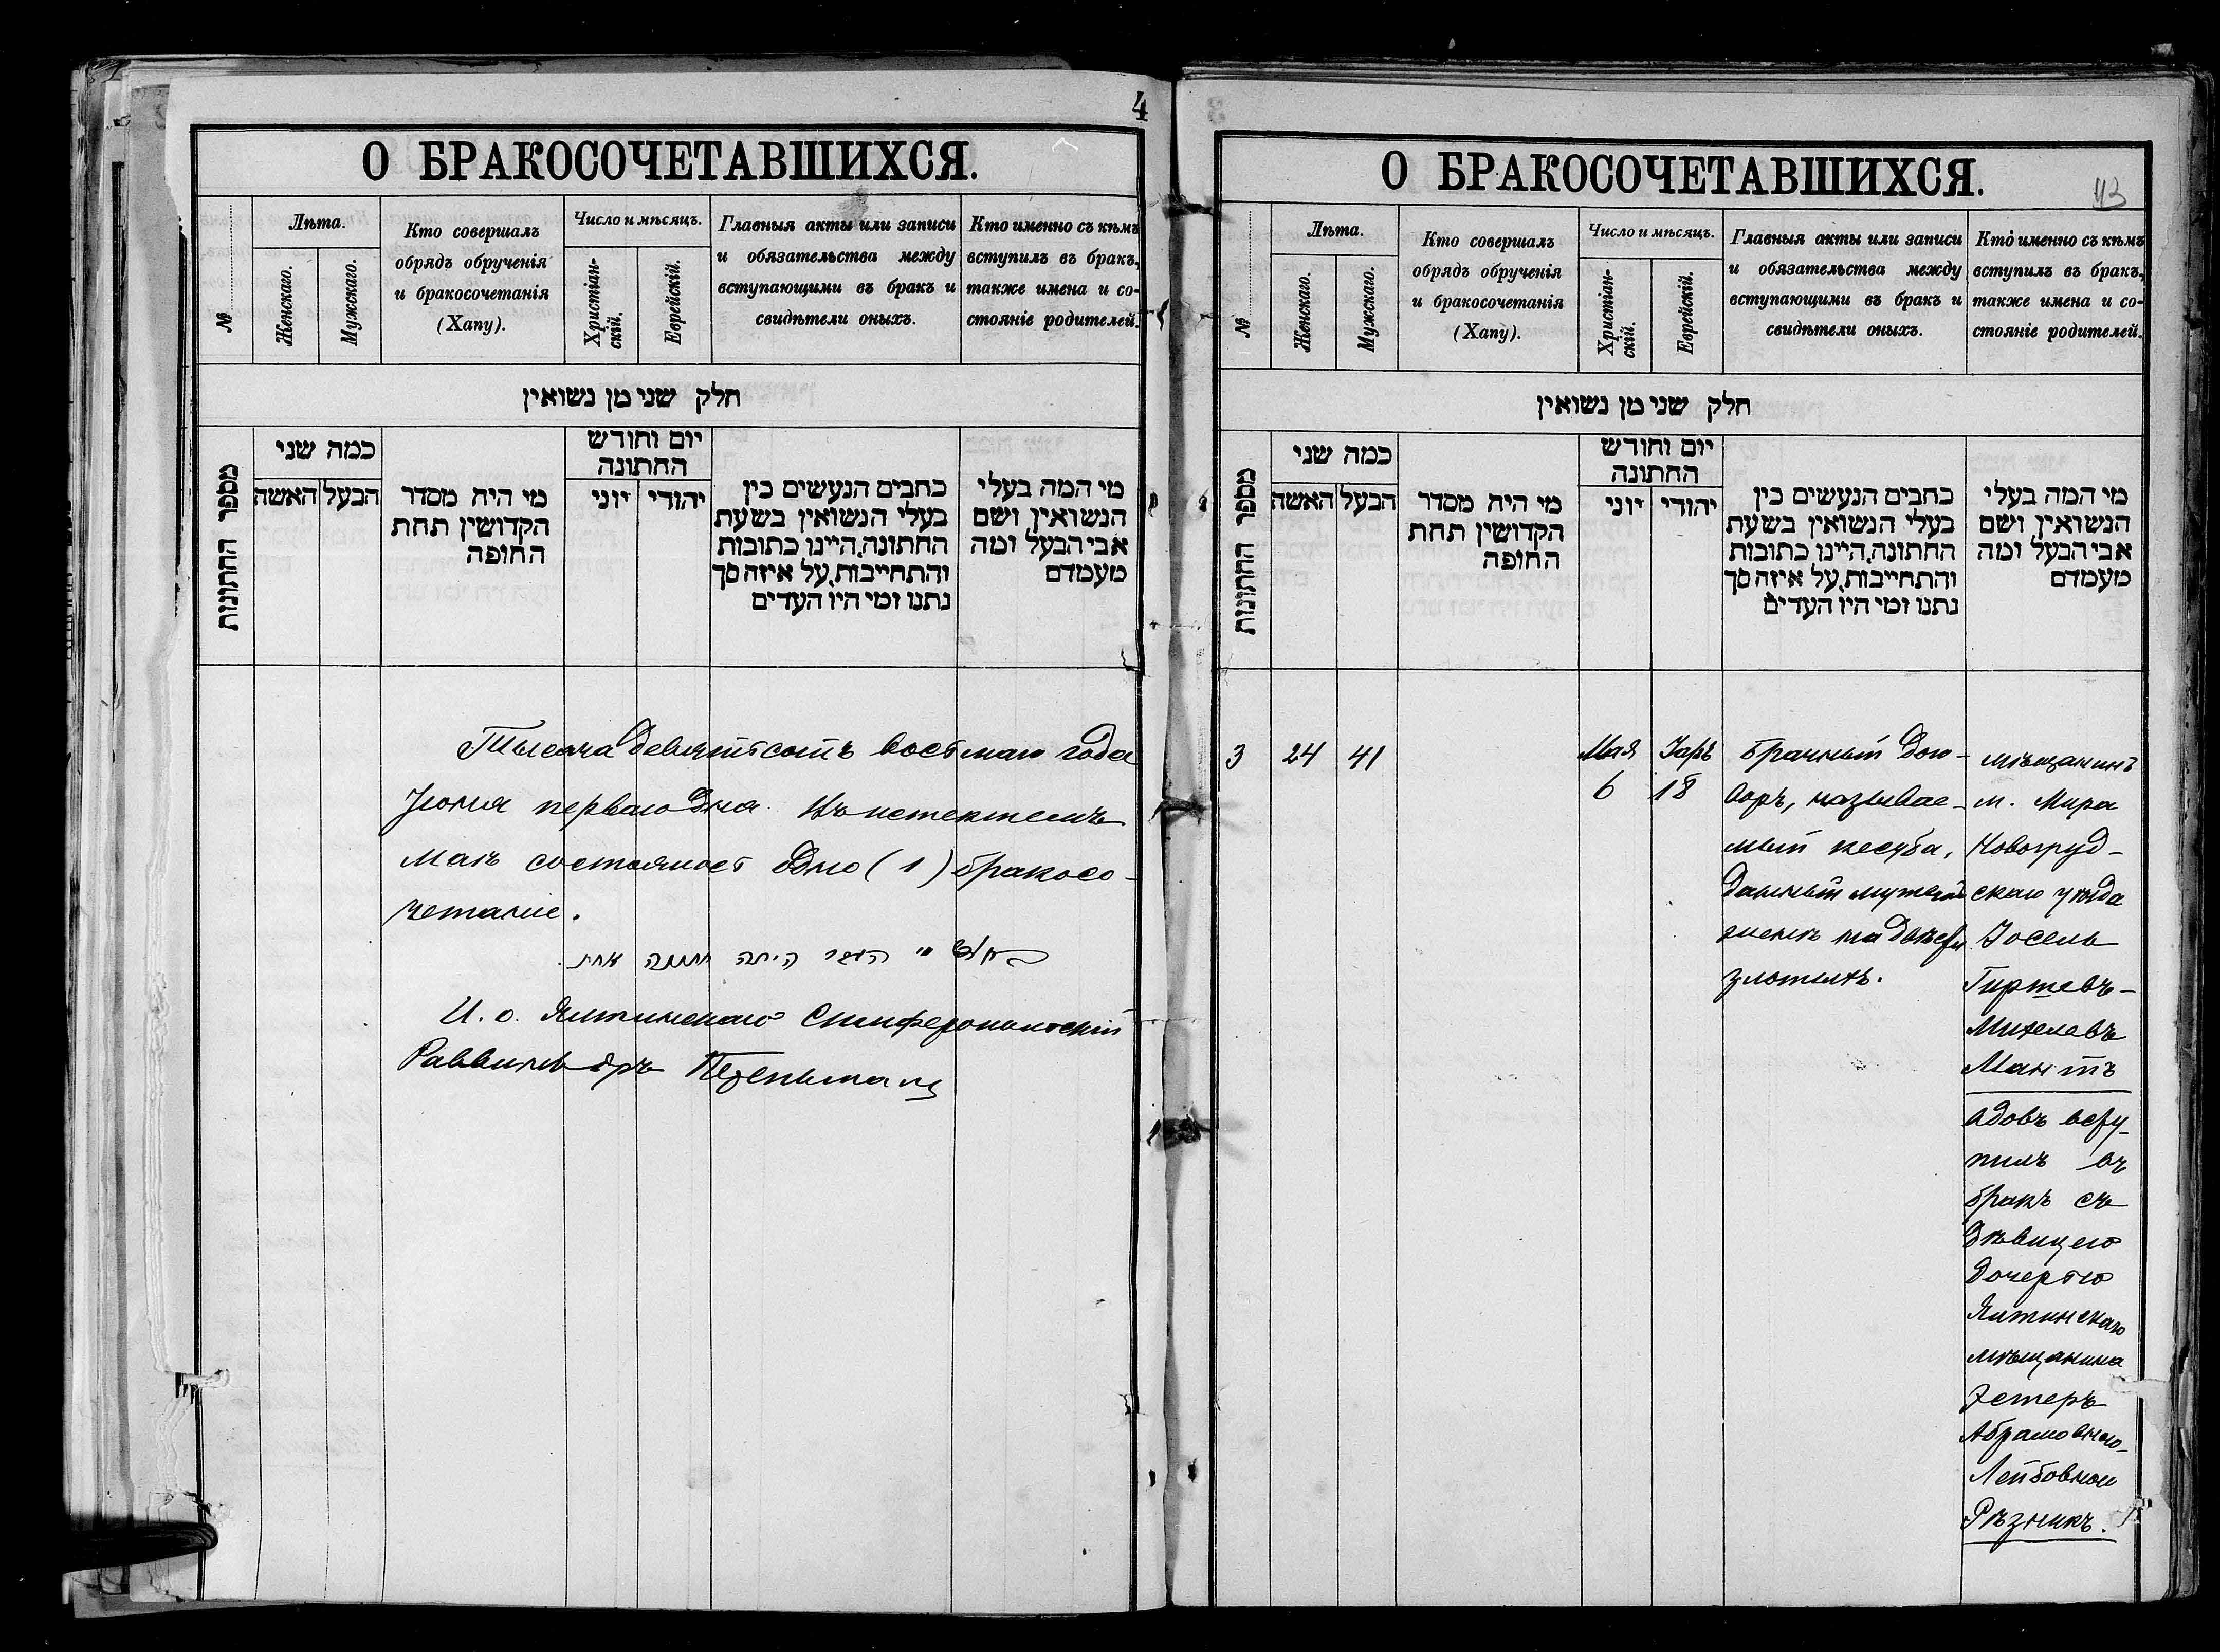 4
О БРАКОСОЧЕТАВШИХСЯ.
№
Лѣта.
Женскаго.
Мужскаго.
Кто совершалъ
обрядъ обрученія
и бракосочетанія
(Хапу).
Число и мѣсяцъ.
Христіан-
скій.
Еврейскій.
Главныя акты или записи
и обязательства между
вступающими въ бракъ и
свидѣтели оныхъ.
Кто именно съ кѣмъ
вступилъ въ бракъ,
также имена и со-
стояніе родителей.
חלק שני מן נשואין
מספר החתונות
כמה שני
הבעל
האשה
מי היה מסדר
הקדושין תחת
החופה
יום וחודש
החתונה
יוני
יהודי
כתבים הנעשים בין
בעלי הנשואין בשעת
החתונה, היינו כתובות
והתחייבות, על איזה סך
נתנו ומי היו העדים
מי המה בעלי
הנשואין ושם
אבי הבעל ומה
מעמדם
Тысяча девятьсотъ восьмаго года
Іюня перваго дня. Въ истекшемъ
маѣ состоялось одно (1) бракосо-
четаніе.
היתה חתונה אחת
И. о. Ялтинскаго Симферопольскій
Раввинъ др
О БРАКОСОЧЕТАВШИХСЯ.
43
№
Лѣта.
Женскаго.
Мужскаго.
Кто совершалъ
обрядъ обрученія
и бракосочетанія
(Хапу).
Число и мѣсяцъ.
Христіан-
скій.
Еврейскій.
Главныя акты или записи
и обязательства между
вступающими въ бракъ и
свидѣтели оныхъ.
Кто именно съ кѣмъ
вступилъ въ бракъ,
также имена и со-
стояніе родителей.
חלק שני מן נשואין
מספר החתונות
כמה שני
הבעל
האשה
מי היה מסדר
הקדושין תחת
החופה
יום וחודש
החתונה
יוני
יהודי
כתבים הנעשים בין
בעלי הנשואין בשעת
החתונה, היינו כתובות
והתחייבות, על איזה סך
נתנו ומי היו העדים
מי המה בעלי
הנשואין ושם
אבי הבעל ומה
מעמדם
3
24
41
Мая
6
Іаръ
18
Брачный дого-
воръ, называе-
мый кесуба,
данный мужемъ
женѣ на двѣсти
злотыхъ.
мѣщанинъ
м. Мира
Новогруд-
скаго уѣзда
Іосель
Гиршевъ-
Михелевъ
Мантъ
вдовъ всту-
пилъ въ
бракъ съ
дѣвицею
дочерью
Ялтинскаго
мѣщанина
Эстеръ
Абрамовною-
Лейбовною
Рѣзникъ.